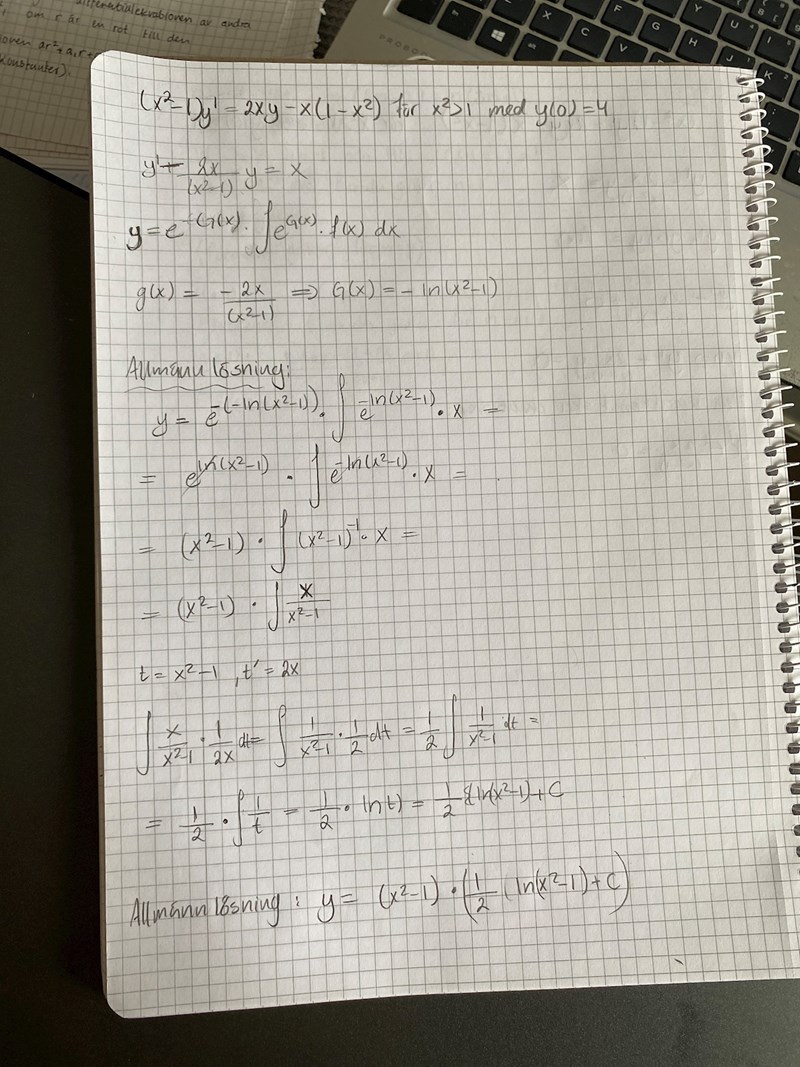 differentialekvationen av andra
om r är en rot till den
Konstanter).
PROBOOK
(x²-1)y' = 2xy - x(1-x²) för x²>1 med y(0)=4
y' - 2x/(x²-1) y = x
y = e^-G(x) · ∫ e^G(x) · f(x) dx
g(x) = -2x/(x²-1) ⇒ G(x) = - ln(x²-1)
Allmänn lösning:
y = e^-(-ln(x²-1)) · ∫ e^-ln(x²-1) · x =
= e^ln(x²-1) · ∫ e^-ln(x²-1) · x =
= (x²-1) · ∫ (x²-1)^-1 · x =
= (x²-1) · ∫ x/(x²-1)
t = x²-1 , t' = 2x
∫ x/(x²-1) · 1/2x dt = ∫ 1/(x²-1) · 1/2 dt = 1/2 ∫ 1/(x²-1) dt =
= 1/2 · ∫ 1/t = 1/2 · ln t) = 1/2 ln(x²-1) + C
Allmänn lösning : y = (x²-1) · (1/2 ln(x²-1) + C)